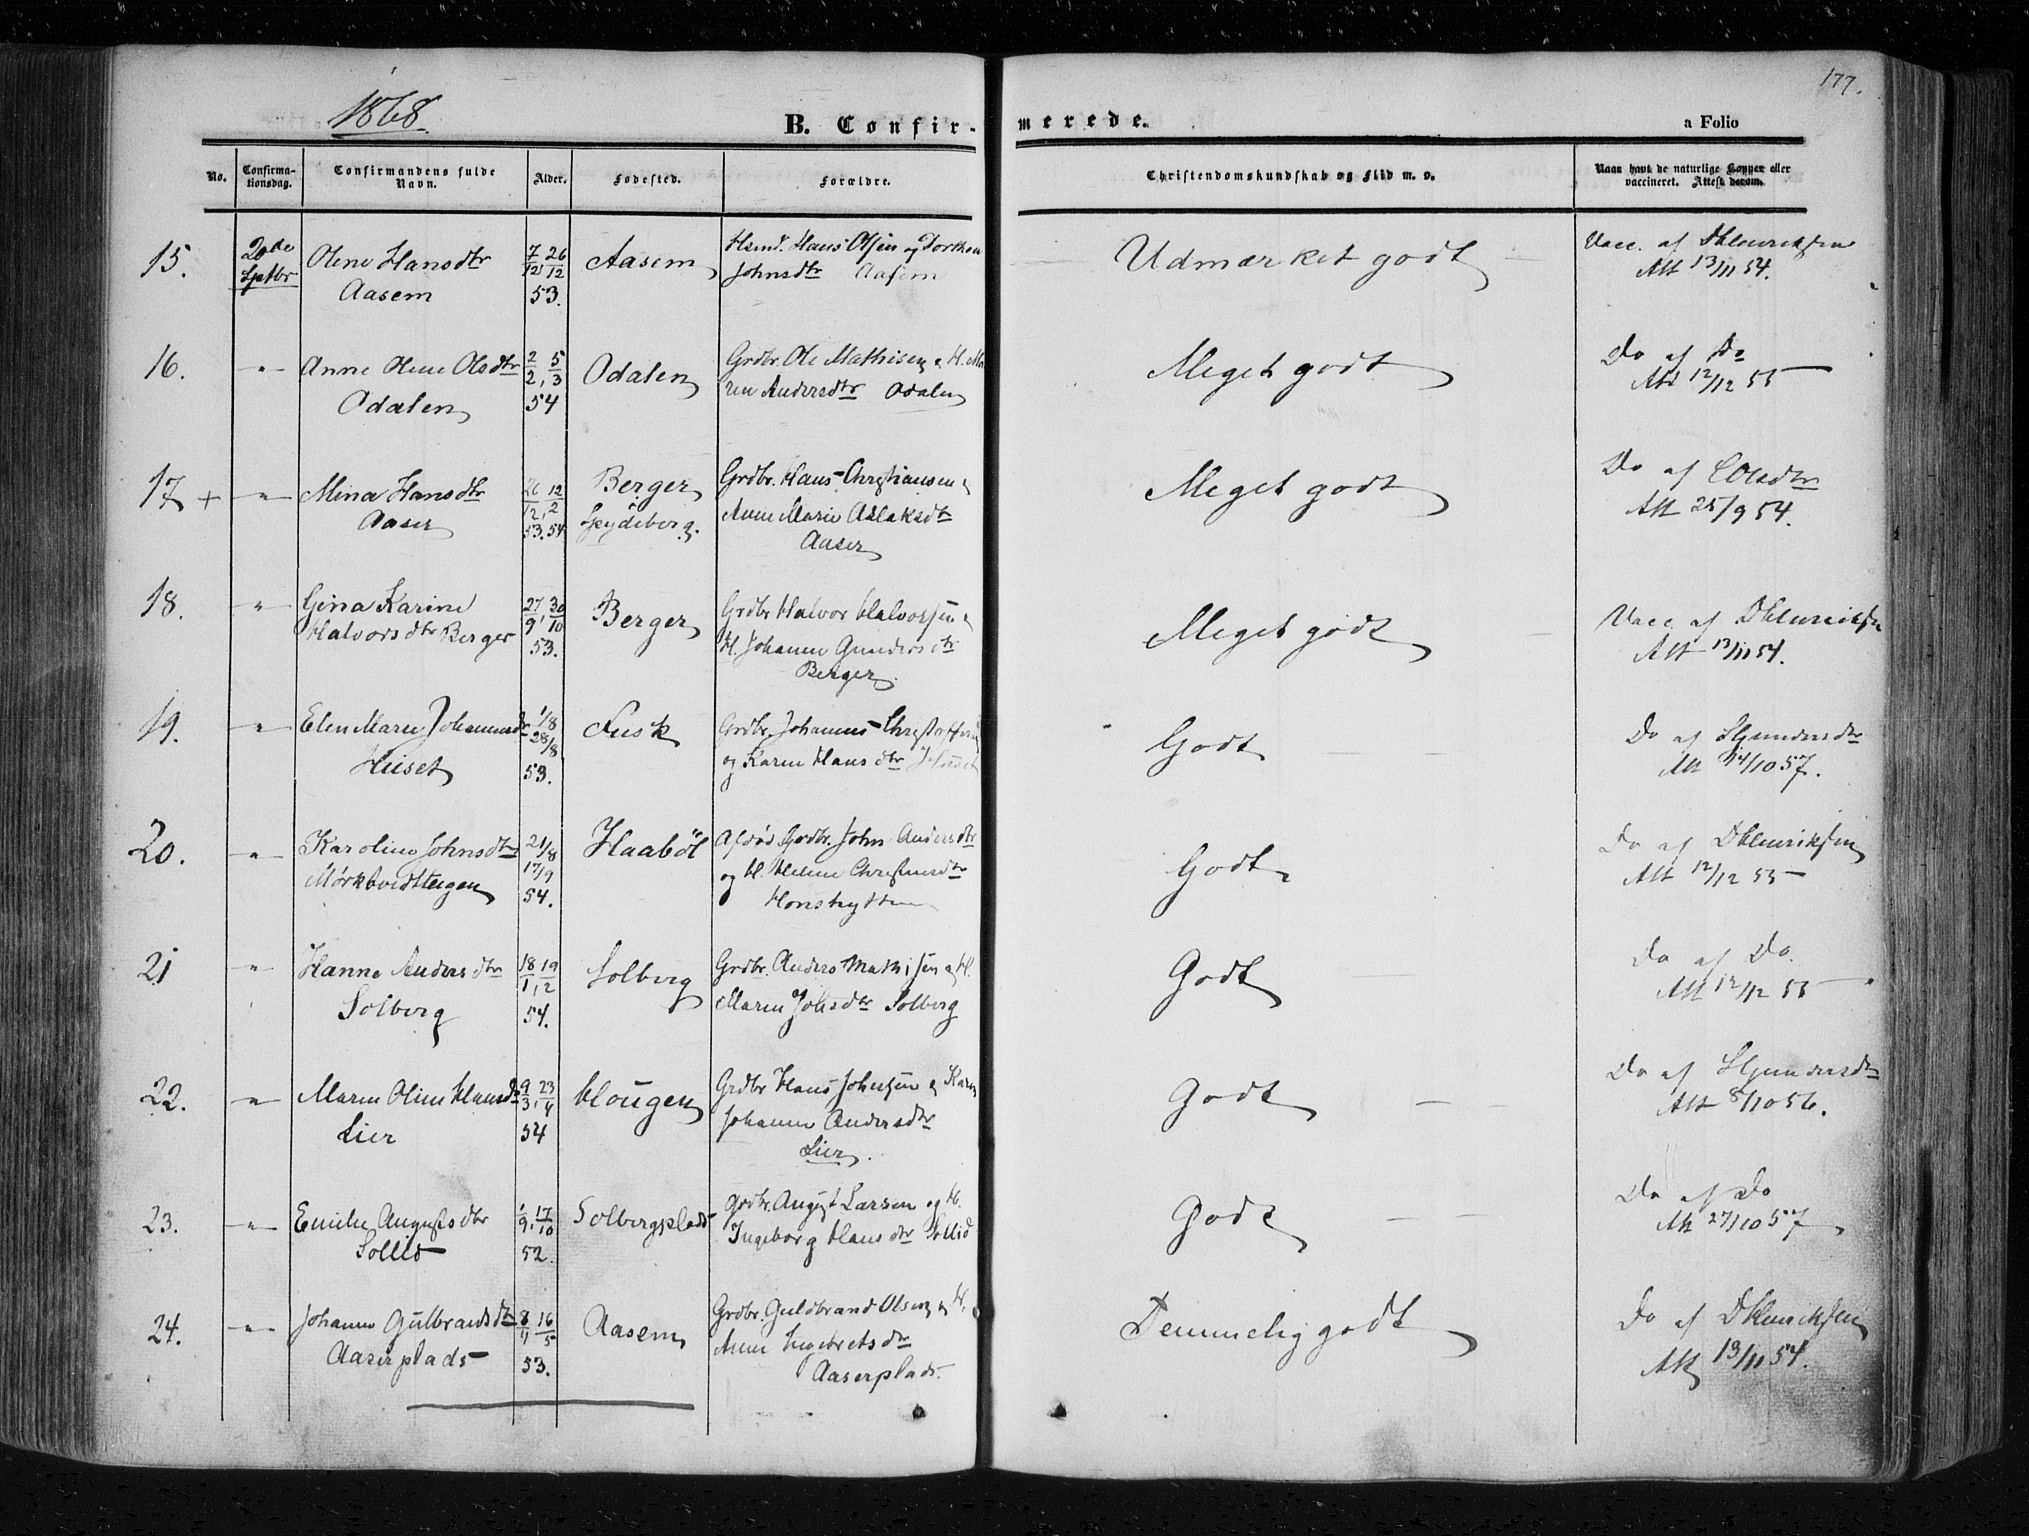 1868.
177.
B. Confir-
merede.
a Folio
No.
Confirma-
tionsdag.
Confirmandens fulde
Navn.
Alder.
Fødested.
Forældre.
Christendomskundskab og Flid m. v.
Naar havt de naturlige Kopper eller
vaccineret. Attest derom.
15.
20de
Septbr
Oline Hansdtr
Aasem
7/12 26/12
53.
Aasem
Hans Olsen og Dorthea
Johnsdtr Aasem
Udmærket godt
Vacc. af DHenriksen
Att 13/11 54.
16.
"
Anne Oline Olsdtr
Odalen
2/2, 5/3
54
Odalen
Grdbr. Ole Mathisen og H. Ma
ren Andersdtr Odalen
Meget godt
Do af Do
Att 12/12 55
17 +
"
Mina Hansdtr
Aaser
26/12, 12/2
53. 54
Berger
Spydeberg.
Grdbr. Hans Christiansen og
Anne Marie Aslaksdtr
Aaser
Meget godt
Do af COlsdtr
Att 25/9 54.
18.
"
Gina Karine
Halvorsdtr Berger
27/9, 30/10
53.
Berger
Grdbr Halvor Halvorsen og
H. Johanne Gundersdtr
Berger
Meget godt
Vacc. af DHenriksen
Att 13/11 54.
19.
"
Elen Marie Johannesdtr
Huset
1/8
28/8
53.
Fusk
Grdbr. Johannes Christoffersen
og Karen Hansdtr Huset
Godt
Do af HGundersdtr
Att 14/10 57.
20.
"
Karoline Johnsdtr
Mørktvedtteigen
21/8
17/9
54.
Haabøl
Afdød Grdbr. John Andersdtr
og H. Helene Christensdtr
Godt
Do af DHenriksen
Att 12/12 55
21
"
Hanne Andersdtr
Solberg
18/1, 19/2
54.
Solberg
Grdbr. Anders Mathisen og H.
Maren Johsdtr Solberg
Godt
Do af Do.
Att 12/12 55
22.
"
Maren Oline Hansdtr
Lier
9/3, 23/4
54
Hougen
Grdbr Hans Johnsen og Karen
Johanne Andersdtr
Lier.
Godt
Do af HGundersdtr
Att 8/10 56.
23.
"
Emilie Augustsdtr
Sollid
1/9, 17/10
52.
Solbergplads
Grdbr. August Larsen og H.
Ingeborg Hansdtr Sollid
Godt
Do af Do
Att 27/10 57
24.
"
Johanne Gulbransdtr
Aaserplads
8/4 16/5
53.
Aasem
Grdbr. Guldbrand Olsen og H.
Anne Ingebretsdtr
Aaserplads.
Temmelig godt
Do af DHenriksen
Att 13/11 54.